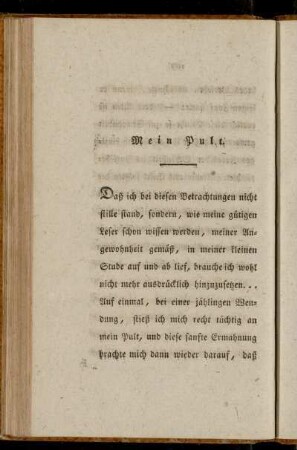 Mein Pult.
Daß ich bei diesen Betrachtungen nicht
stille stand, sondern, wie meine gütigen
Leser schon wissen werden, meiner An-
gewohnheit gemäß, in meiner kleinen
Stube auf und ab lief, brauche ich wohl
nicht mehr ausdrücklich hinzuzusetzen...
Auf einmal, bei einer jählingen Wen-
dung, stieß ich mich recht tüchtig an
mein Pult, und diese sanfte Ermahnung
brachte mich dann wieder darauf, daß